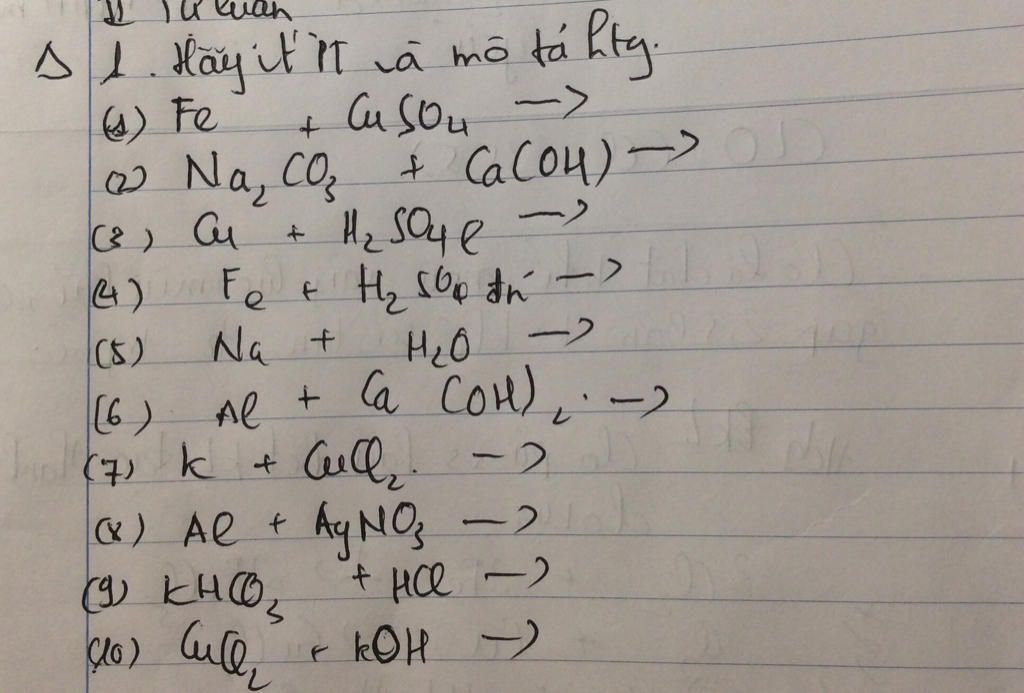 II Tự luận
1. Hãy viết PT và mô tả htg.
(1) Fe + CuSO4 →
(2) Na2CO3 + Ca(OH) →
(3) Cu + H2SO4 l →
(4) Fe + H2SO4 đn →
(5) Na + H2O →
(6) Al + Ca (OH)2. →
(7) K + CuCl2. →
(8) Al + AgNO3 →
(9) KHCO3 + HCl →
(10) CuCl2 + KOH →